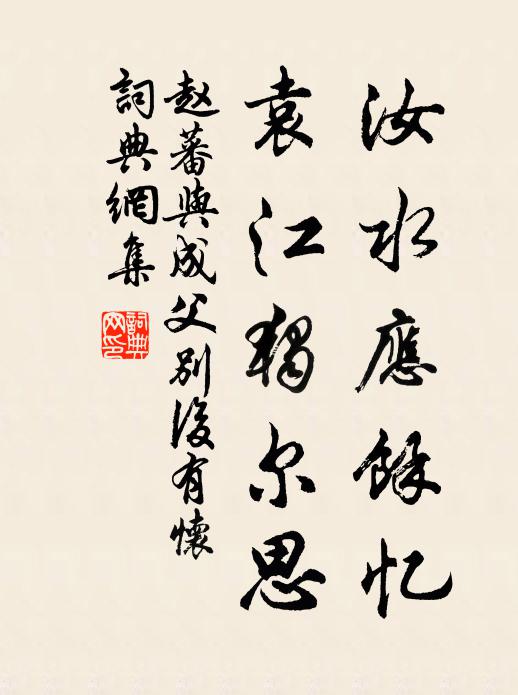 汝水應餘忆
袁江獨尔思
赵蕃與成父别後有懷
詞典網集
詞典網印